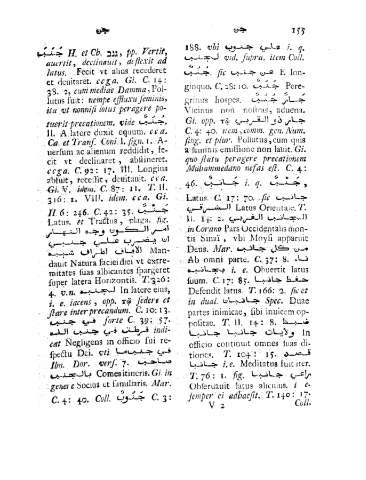 جنب
جنب
155
جَنَبَ H. et Ch. גנב, pp. Vertit,
avertit, declinavit, deflexit ad
latus. Fecit vt alius recederet
et devitaret. cca. Gi. C. 14:
38. 2, cum mediae Damma, Pol-
lutus fuit: nempe effluxu seminis,
ita vt nonnisi lotus peragere po-
tuerit precationem. vide جُنُبٌ.
II. A latere duxit equum. cca.
Ca. et Trans. Coni. I. sign. 1. A-
versum ac alienum reddidit, fe-
cit vt declinaret, abstineret.
ccga. C. 92: 17. III. Longius
abfuit, recessit, devitavit. cca.
Gi. V. idem. C. 87: 11. T. II.
316: 1. VIII. idem. cca. Gi.
H 6: 246. C. 42: 35. جَنْبٌ
Latus. et Tractus, plaga. C. 39: 57.
امر الكون وجه النهار
ان يضرب على جنبي
الافاف اطراف شبيه Man-
davit Natura faciei diei vt extre-
mitates suas albicantes spargeret
super latera Horizontis. T. 326:
4. v.n. لجنبه In latere eius,
i. e. iacens, opp. τῷ sedere et
stare inter precandum. C. 10: 13.
في جنب forte C. 39: 57.
فرطت في جنب الله indi-
cat Negligens in officio fui re-
spectu Dei. vti في جنبها
Ibn. Dor. vers. 7. صاحب
بالجنب Comes itineris. Gi. in
genere Socius et familiaris. Mar.
C. 4: 40. Coll. جُنُبٌ C. 3:
188. vbi على جنوب i. q.
لجنب vid. supra. item Coll.
جُنُبٌ. sic عن جنب E lon-
ginquo. C. 28: 10. جَنِيبٌ Pere-
grinus hospes. جار جنب
Vicinus non nostras, advena.
Gi. opp. τῷ جار ذو القربى
C. 4: 40. item, comm. gen. Num.
sing. et plur. Pollutus, cum quis
a seminis emissione non lavit. Gi.
quo statu peragere precationem
Muhammedano nefas est. C. 4:
46. جانب i. q. جَنْبٌ.
Latus. C. 17: 70. sic جانب
الشرقي Latus Orientale. T.
II. 14: 2. الجانب الغربي
in Corano Pars Occidentalis mon-
tis Sinai, vbi Mosi apparuit
Deus. Mar. من كل جانب
Ab omni parte. C. 37: 8. نا
بجانبه i. e. Obvertit latus
suum. C. 17: 85. حفظ جانبا
Defendit latus. T. 166: 2. sic et
in dual. جانبان Spec. Duae
partes inimicae, sibi invicem op-
positae. T. II. 14: 8. ضبط
ولايات جانبا جانبا In
officio continuit omnes suas di-
tiones. T. 104: 15. قصد
جانبا i. e. Meditatus fuit iter.
T. 76: 1. fig. راعى جانبا
Observavit latus alicuius. i. e.
semper ei adhaesit. T. 140: 17.
V 2
Coll.